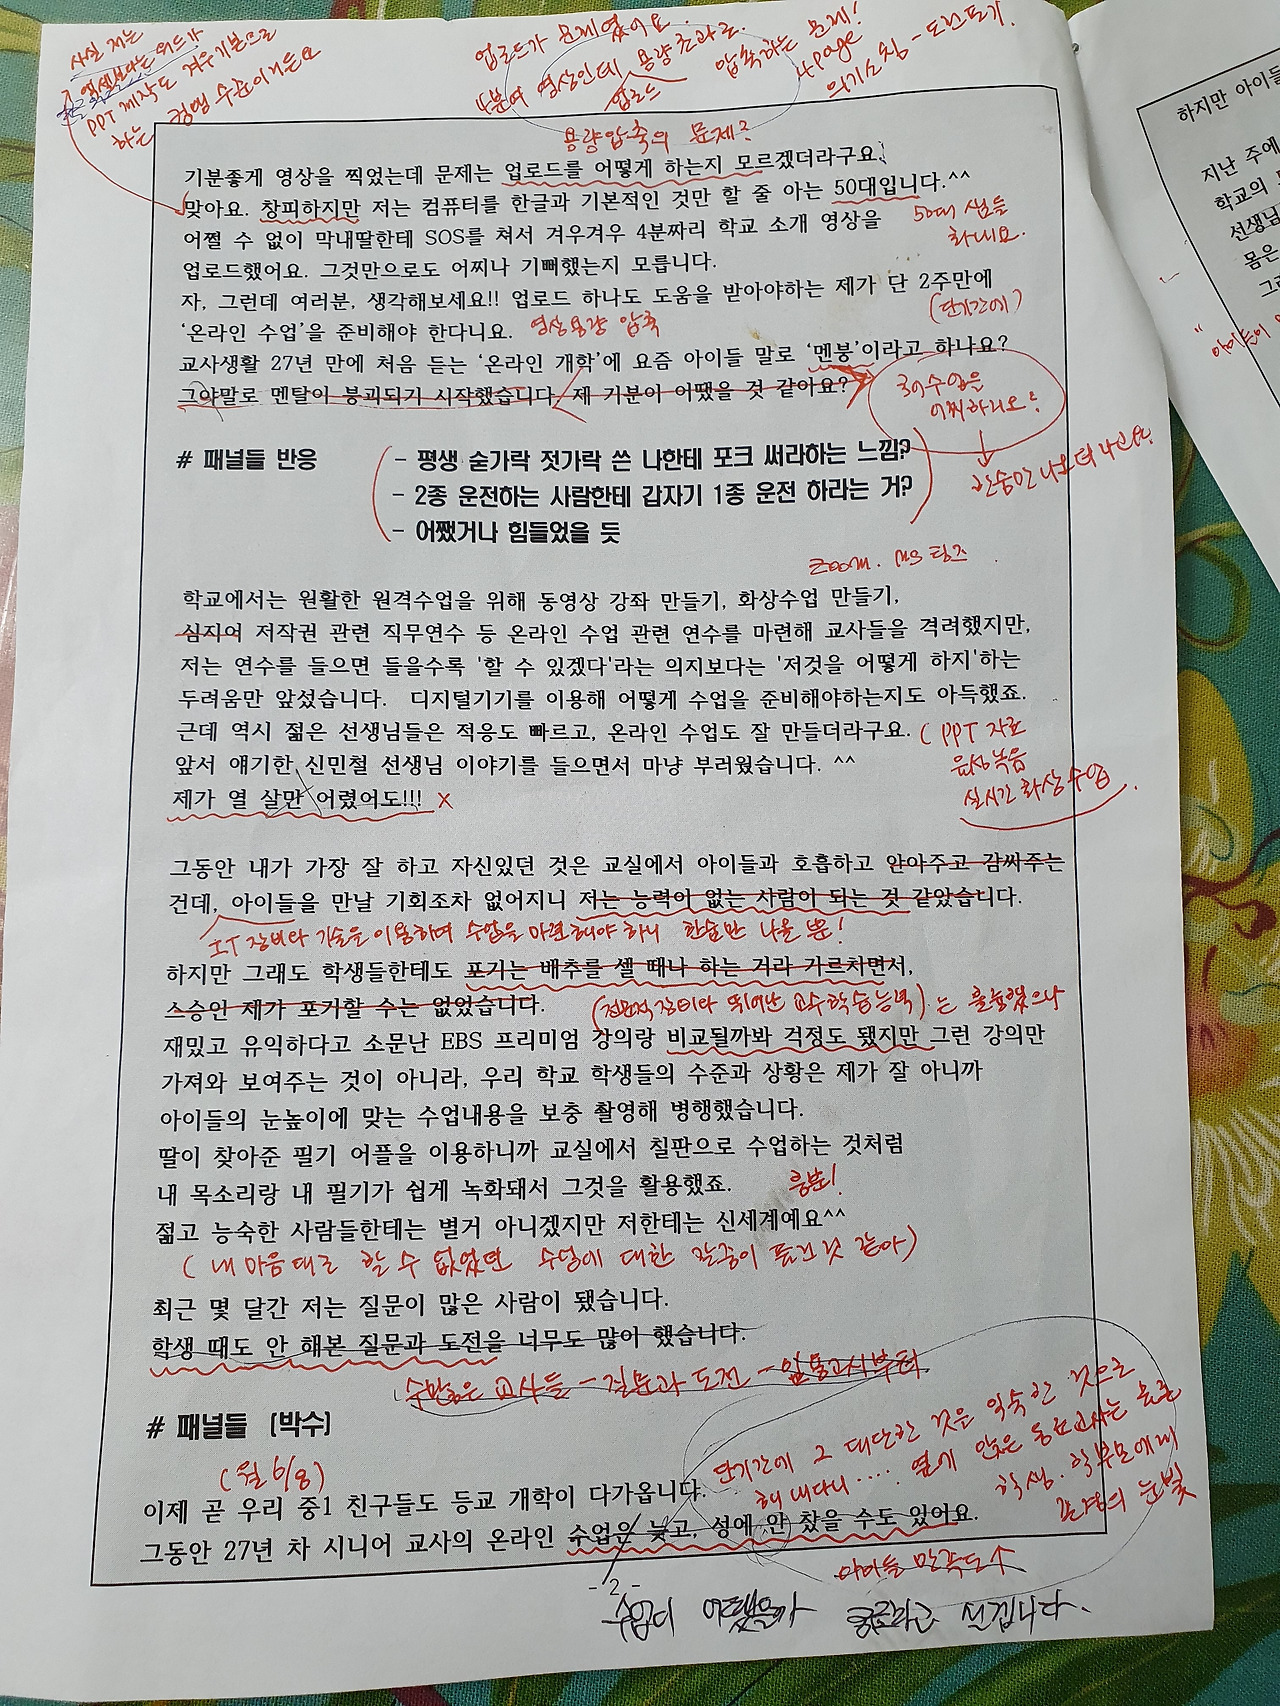 사실 저는
엑셀보다는 워드가
PPT 제작도 겨우 기본으로
하는 컴맹 수준이거든요
업로드가 문제였어요.
4분여 영상인데 용량초과로
업로드
압축하는 문제!
4page
의기소침 - 도란도란
용량압축의 문제?
기분좋게 영상을 찍었는데 문제는 업로드를 어떻게 하는지 모르겠더라구요.
맞아요. 창피하지만 저는 컴퓨터를 한글과 기본적인 것만 할 줄 아는 50대입니다.^^
50대 샘들
화내요.
어쩔 수 없이 막내딸한테 SOS를 쳐서 겨우겨우 4분짜리 학교 소개 영상을
업로드했어요. 그것만으로도 어찌나 기뻐했는지 모릅니다.
자, 그런데 여러분, 생각해보세요!! 업로드 하나도 도움을 받아야하는 제가 단 2주만에
(단기간에)
'온라인 수업'을 준비해야 한다니요.
영상용량 압축
교사생활 27년 만에 처음 듣는 '온라인 개학'에 요즘 아이들 말로 '멘붕'이라고 하나요?
그야말로 멘탈이 붕괴되기 시작했습니다. 제 기분이 어땠을 것 같아요?
수업을
어찌하리오?
한숨만 나오더라고요.
# 패널들 반응
- 평생 숟가락 젓가락 쓴 나한테 포크 써라하는 느낌?
- 2종 운전하는 사람한테 갑자기 1종 운전 하라는 거?
- 어쨌거나 힘들었을 듯
Zoom. MS 팀즈
학교에서는 원활한 원격수업을 위해 동영상 강좌 만들기, 화상수업 만들기,
심지어 저작권 관련 직무연수 등 온라인 수업 관련 연수를 마련해 교사들을 격려했지만,
저는 연수를 들으면 들을수록 '할 수 있겠다'라는 의지보다는 '저것을 어떻게 하지'하는
두려움만 앞섰습니다. 디지털기기를 이용해 어떻게 수업을 준비해야하는지도 아득했죠.
근데 역시 젊은 선생님들은 적응도 빠르고, 온라인 수업도 잘 만들더라구요.
( PPT 자료
음성녹음
실시간 화상수업
앞서 얘기한 신민철 선생님 이야기를 들으면서 마냥 부러웠습니다. ^^
제가 열 살만 어렸어도!!! X
그동안 내가 가장 잘 하고 자신있던 것은 교실에서 아이들과 호흡하고 안아주고 감싸주는
건데, 아이들을 만날 기회조차 없어지니 저는 능력이 없는 사람이 되는 것 같았습니다.
IT 장비와 기술을 이용하며 수업을 마련해야 하니 한숨만 나올 뿐!
하지만 그래도 학생들한테도 포기는 배추를 셀 때나 하는 거라 가르치면서,
스승인 제가 포기할 수는 없었습니다.
(전문적 장비와 뛰어난 교수학습능력)는 훌륭했으나
재밌고 유익하다고 소문난 EBS 프리미엄 강의랑 비교될까봐 걱정도 됐지만 그런 강의만
가져와 보여주는 것이 아니라, 우리 학교 학생들의 수준과 상황은 제가 잘 아니까
아이들의 눈높이에 맞는 수업내용을 보충 촬영해 병행했습니다.
딸이 찾아준 필기 어플을 이용하니까 교실에서 칠판으로 수업하는 것처럼
내 목소리랑 내 필기가 쉽게 녹화돼서 그것을 활용했죠.
흥분!
젊고 능숙한 사람들한테는 별거 아니겠지만 저한테는 신세계예요^^
( 내 마음대로 할 수 없었던 수업에 대한 갈증이 풀린 것 같아)
최근 몇 달간 저는 질문이 많은 사람이 됐습니다.
학생 때도 안 해본 질문과 도전을 너무도 많이 했습니다.
수많은 교사들 - 질문과 도전 - 임용고시부터
# 패널들 (박수)
(월 6/8)
이제 곧 우리 중1 친구들도 등교 개학이 다가옵니다.
단기간에 그 대단한 것을 익숙한 것으로
해내다니..... 옆에 앉은 동료교사는 물론
학생. 학부모에게
존경의 눈빛
그동안 27년 차 시니어 교사의 온라인 수업은 낯고, 성에 안 찼을 수도 있어요.
아이들 만족도↑
- 2 -
수업이 어땠을까 궁금하고 설렙니다.
하지만 아이들
지난 주에
학교의
선생님
몸은
그래
" 아이들이